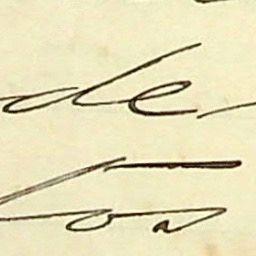 de
los